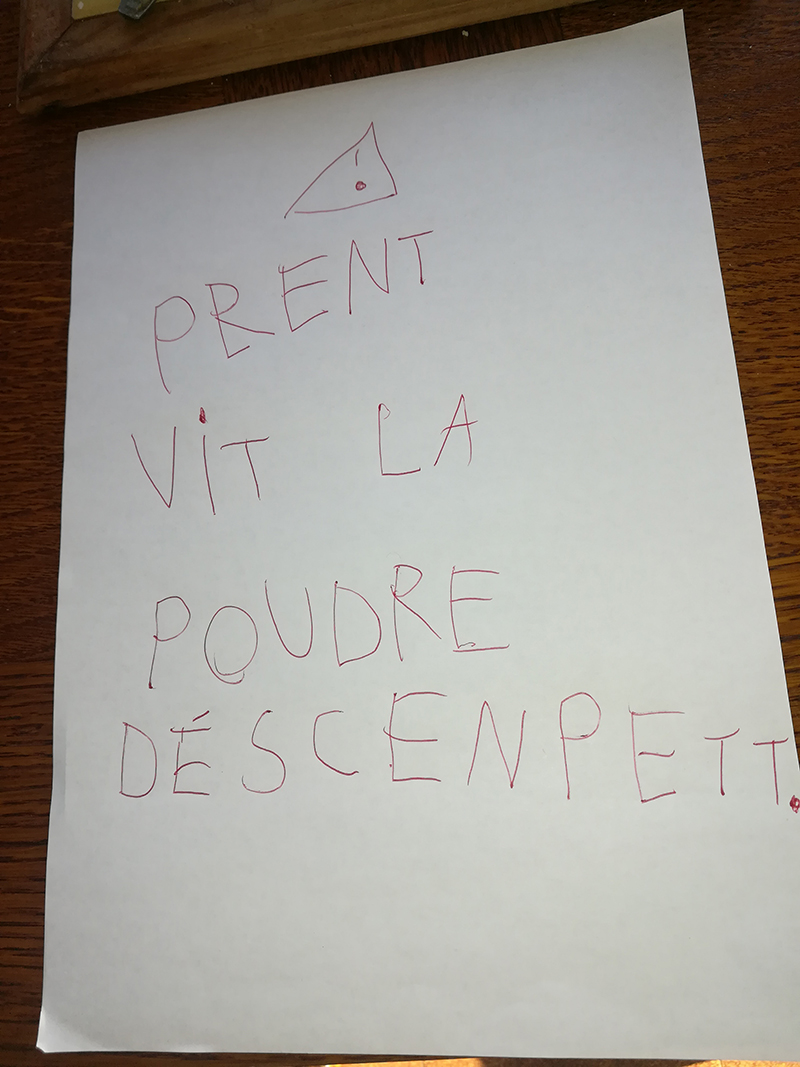 !
PRENT
ViT LA
POUDRE
DÉSCENPETT.